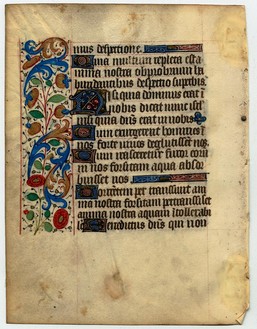 mus despectione.
Quia multum repleta est a
nima nostra obprobrium ha
bundantibus despectio superbis.
Nisi quia dominus erat in
nobis dicat nunc isrl
nisi quia dns erat in nobis
Cum exurgerent homines in
nos forte vivos deglutissent nos.
Cum irasceretur furor eorum
in nos forsitan aqua absor
buisset nos
Torrentem pertransivit an
ima nostra forsitan pertransisset
anima nostra aquam intollerabi
lem Benedictus dns qui non